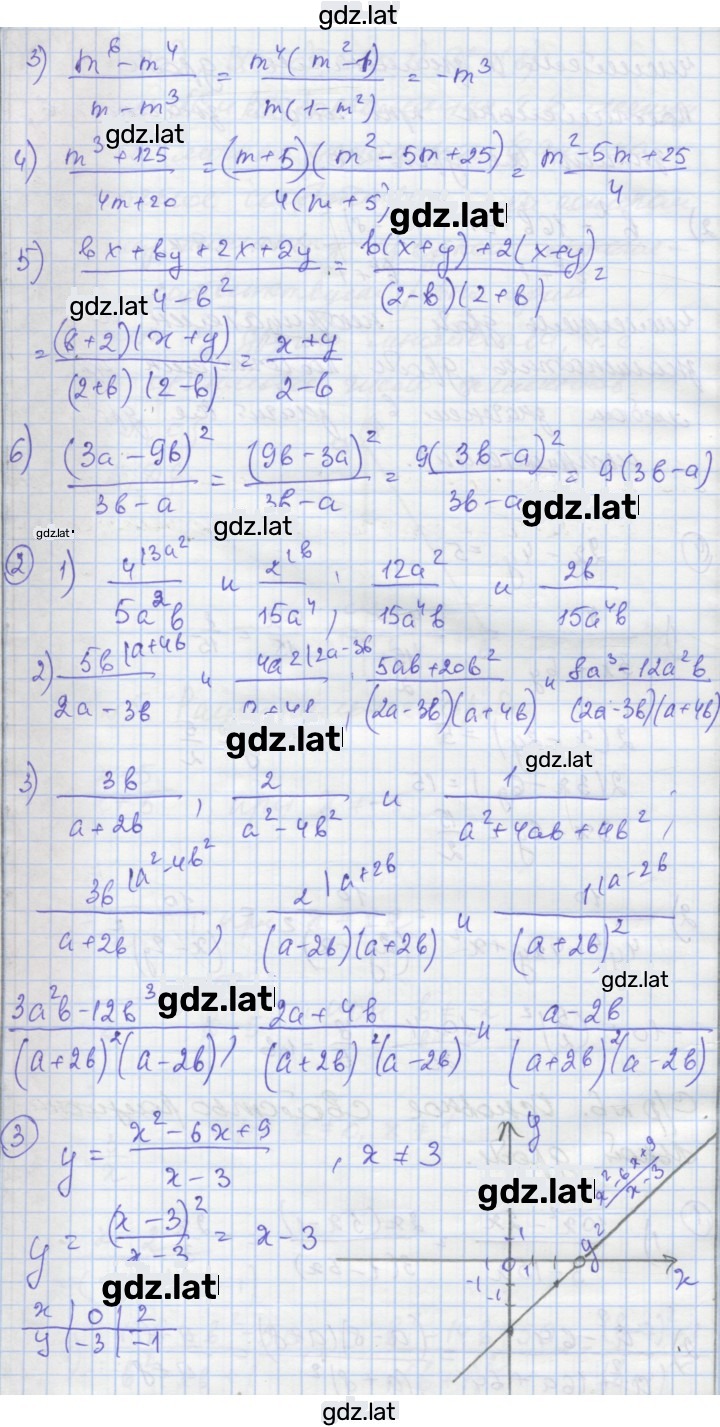 gdz.lat
3) (m^6 - m^4)/(m - m^3) = (m^4(m^2 - 1))/(m(1 - m^2)) = -m^3
gdz.lat
4) (m^3 + 125)/(4m + 20) = ((m + 5)(m^2 - 5m + 25))/(4(m + 5) = (m^2 - 5m + 25)/4
gdz.lat
5) (bx + by + 2x + 2y)/(4 - b^2) = (b(x + y) + 2(x + y))/((2 - b)(2 + b)) =
gdz.lat
= ((b + 2)(x + y))/((2 + b)(2 - b)) = (x + y)/(2 - b)
6) (3a - 9b)^2/(3b - a) = (9b - 3a)^2/(3b - a) = 9(3b - a)^2/(3b - a) = 9(3b - a)
gdz.lat
gdz.lat
gdz.lat
② 1) 4^{|3a^2}/(5a^2b) и 2^{|b}/(15a^4); 12a^2/(15a^4b) и 2b/(15a^4b)
2) 5b^{|a+4b}/(2a - 3b) и 4a^2^{|2a-3b}/(a + 4b); (5ab + 20b^2)/((2a - 3b)(a + 4b)) и (8a^3 - 12a^2b)/((2a - 3b)(a + 4b))
gdz.lat
gdz.lat
3) 3b/(a + 2b), 2/(a^2 - 4b^2) и 1/(a^2 + 4ab + 4b^2);
3b^{|a^2-4b^2}/(a + 2b), 2^{|a+2b}/((a - 2b)(a + 2b)) и 1^{|a-2b}/(a + 2b)^2
gdz.lat
gdz.lat
(3a^2b - 12b^3)/((a + 2b)^2(a - 2b)), (2a + 4b)/((a + 2b)^2(a - 2b)) и (a - 2b)/((a + 2b)^2(a - 2b))
③ y = (x^2 - 6x + 9)/(x - 3), x ≠ 3
gdz.lat
y = (x - 3)^2/(x - 3) = x - 3
gdz.lat
x | 0 | 2
y | -3 | -1
y
y = (x^2 - 6x + 9)/(x - 3)
1
0 1
x
-1
-1
gdz.lat